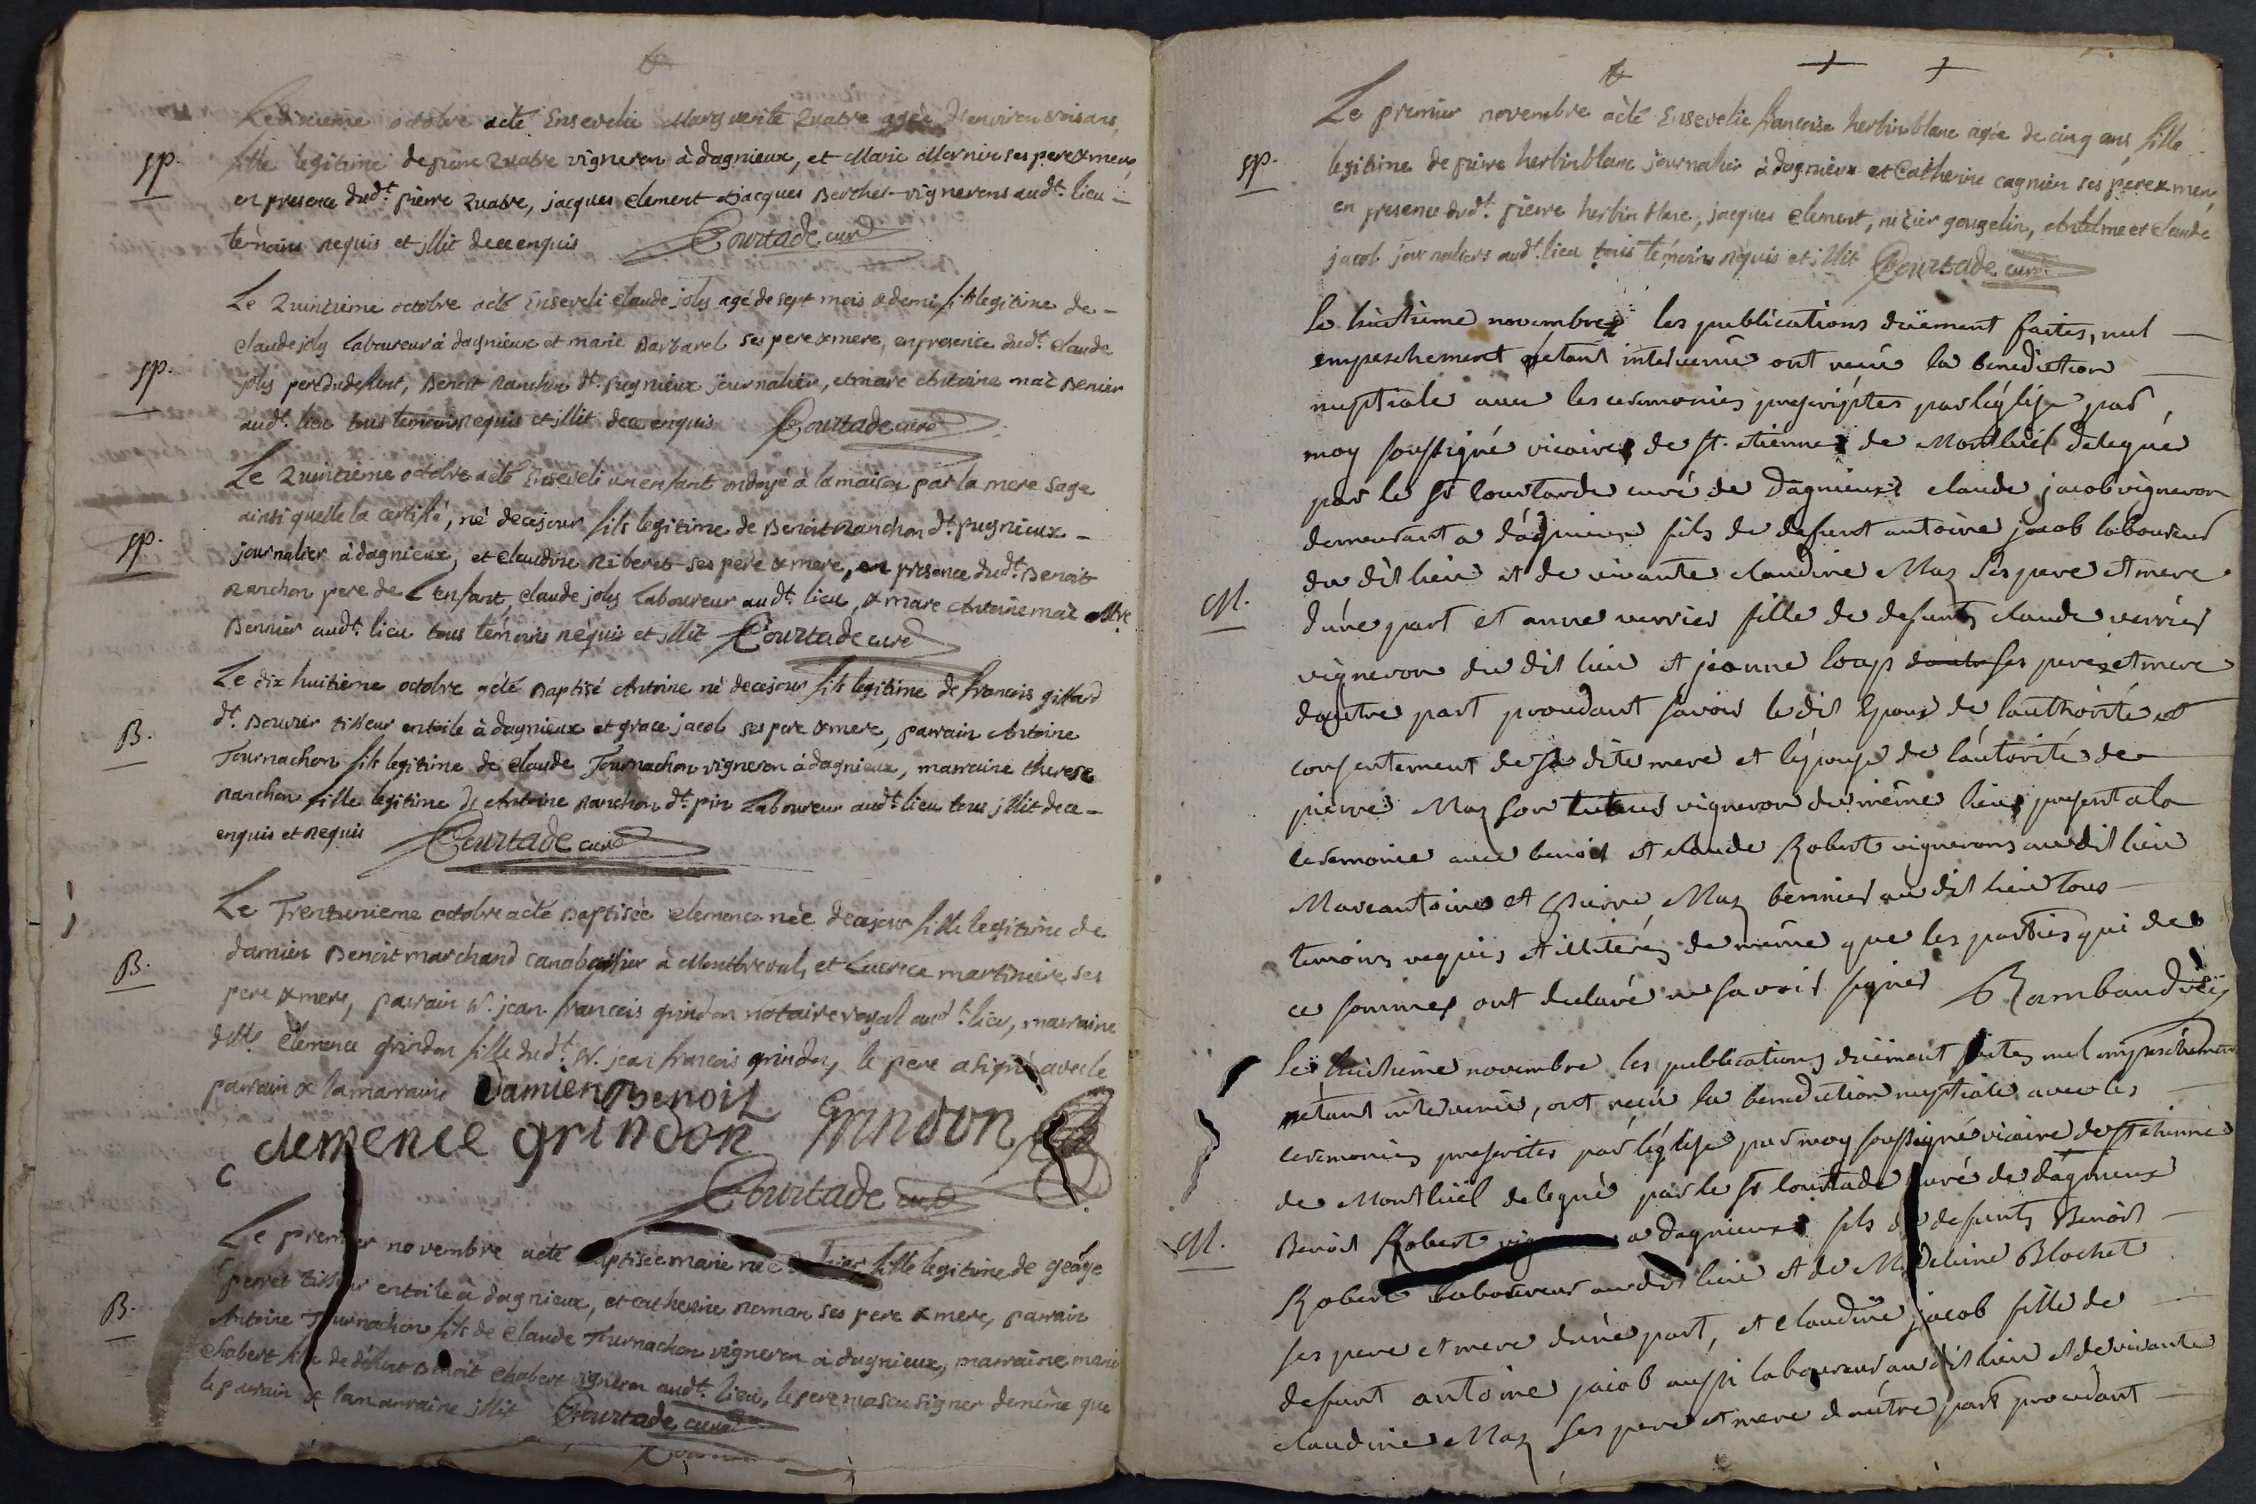 Le dixieme octobre aété Ensevelie Marguerite Quatre agée d'environ trois ans,
sp. fille legitime de pierre Quatre vigneron à dagnieux, et Marie Mernier ses pere & mere,
en presence dudt. pierre Quatre, jacques Clement & jacques Berchet vignerons audt. lieu
temoins requis et illit de ce enquis Courtade curé
Le Quinzieme octobre aété Enseveli Claude joly agé de sept mois & demi fils legitime de
Claude joly laboureur à dagnieux et marie Barbarel ses pere & mere, en presence dudt. Claude
sp. joly pere du defunt, Benoit Ranchon dt. pugnieux journalier, et marc Antoine maz Benier
audt. lieu tous temoins requis et illit de ce enquis Courtade curé
Le Quinzieme octobre aété Enseveli un enfant ondoyé à la maison par la mere sage
ainsi quelle la certifié, né de ce jour fils legitime de Benoit Ranchon dt. pugnieux
sp. journalier à dagnieux, et Claudine Riberet ses pere & mere, en presence dudt. Benoit
Ranchon pere de L'enfant, Claude joly laboureur audt. lieu, & marc Antoine maz
Bennier audt. lieu tous temoins requis et illit Courtade curé
Le dix huitieme octobre aété Baptisé Antoine né de ce jour fils legitime de francois gillard
B. dt. Bouvier tisseur en toile à dagnieux et grace jacob ses pere & mere, parrain Antoine
Tournachon fils legitime de Claude Tournachon vigneron à dagnieux, marraine therese
Ranchon fille legitime de Antoine Ranchon dt. pin Laboureur audt. lieu tous illit de ce
enquis et requis Courtade curé
Le Trentunieme octobre aété Baptisée Clemence née de ce jour fille legitime de
B. damien Benoit marchand à Montreval, et Lucrece martiniere ses
pere & mere, parrain jean francois grindon notaire royal audt. lieu, marraine
delle. Clemence grindon fille dudt. jean francois grindon, le pere a signé avec le
parrain & la marraine Damien Benoit
clemence grindon Grindon
Courtade curé
Le premier novembre aété Baptisée marie née fille legitime de george
perret tisseur en toile à dagnieux, et catherine Roman ses pere & mere, parrain
B. Antoine Tournachon fils de Claude Tournachon vigneron à dagnieux, marraine marie
Chabert fille de défunt Benoit Chabert vigneron audt. lieu, le pere na scu signer de même que
le parrain & la marraine illit Courtade curé
Le premier novembre aété Ensevelie francoise herbinblanc agée de cinq ans, fille
sp. legitime de pierre herbinblanc journalier à dagnieux et Catherine cagnien ses pere & mere,
en presence dudt. pierre herbin blanc, jacques Clement, nizier gougelin, Antelme et Claude
jacob journaliers audt. lieu tous temoins requis et illit Courtade curé
Le huictieme novembre les publications düement faites, nul
empeschement netant intervenu ont receu la benediction
nuptiale avec les ceremonies prescriptes par léglise par
moy soussigné vicaire de st. etienne de Montluël delegué
par le sr Courtarde curé de Dagnieux claude jacob vigneron
demeurant a dagnieux fils de defunt antoine jacob laboureur
du dit lieu et de vivante claudine Maz ses pere et mere
M. d'une part et anne verrier fille de defunts claude verrier
vigneron du dit lieu et jeanne loup ses pere et mere
dautre part procedant savoir le dit epoux de lauthorité et
consentement de sa dite mere et l'épouse de l'autorité de
pierre Maz son tuteur vigneron du même lieu present a la
ceremonie avec benoit et claude Robert vignerons audit lieu
Marc antoine et pierre Maz bennier au dit lieu tous
temoins requis et illiterés de même que les parties qui de
ce sommés ont declaré ne savoir signer Rambaud vic
Le huictieme novembre les publications düement faites nul empeschement
netant intervenu, ont receu la benediction nuptiale avec les
ceremonies prescrites par léglise par moy soussigné vicaire de st etienne
de Montluël delegué par le sr Courtade curé de dagnieux
M. Benoit Robert vigneron a dagnieux fils de defunts Benoit
Robert laboureur au dit lieu et de Madeleine Blochet
ses pere et mere d'une part, et claudine jacob fille de
defunt antoine jacob aussi laboureur au dit lieu et de vivante
claudine Maz ses pere et mere d'autre part procedant